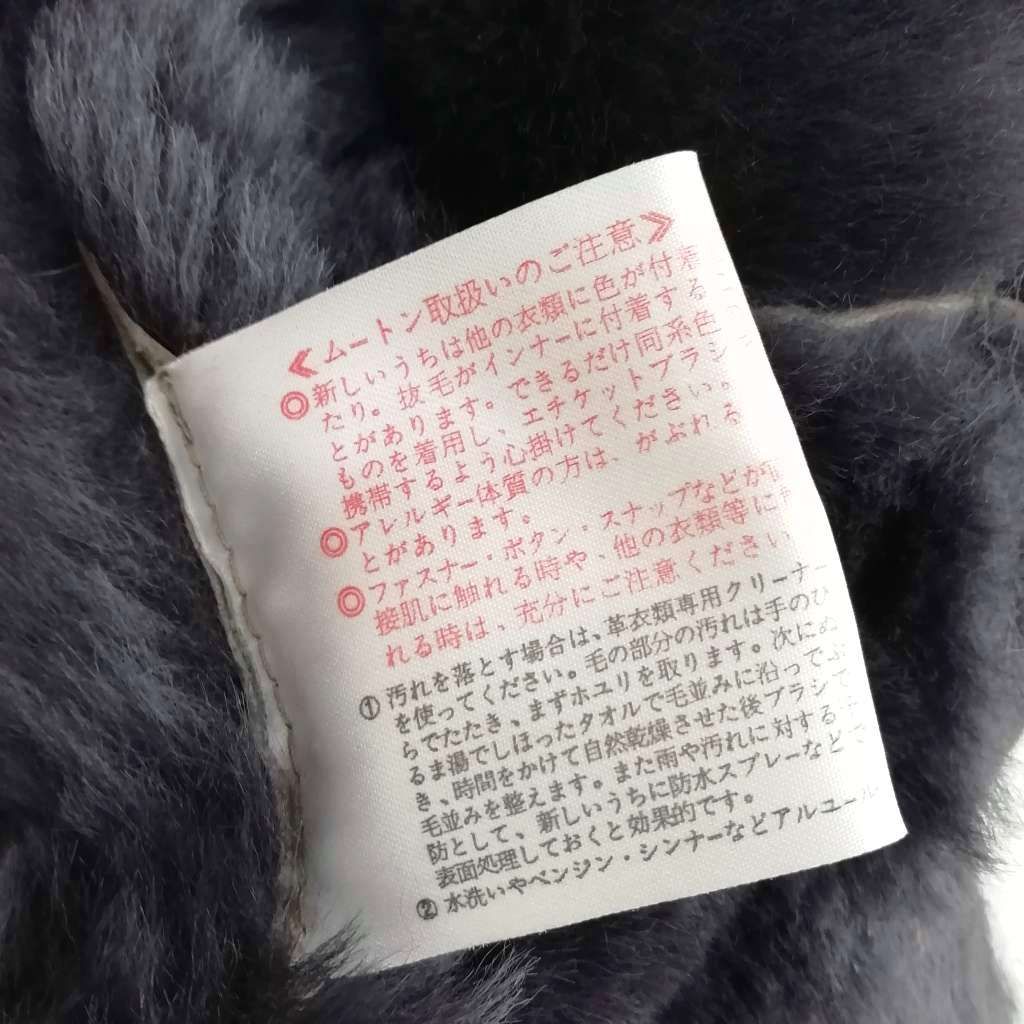 ≪ムートン取扱いのご注意≫
◎新しいうちは他の衣類に色が付着
たり。抜毛がインナーに付着する
とがあります。できるだけ同系色
ものを着用し、エチケットブラシ
携帯するよう心掛けてください。
◎アレルギー体質の方は、がぶれる
とがあります。
◎ファスナー・ボタン・スナップなどが
接肌に触れる時や、他の衣類等に
れる時は、充分にご注意ください
① 汚れを落とす場合は、革衣類専用クリーナー
を使ってください。毛の部分の汚れは手のひ
らでたたき、まずホユリを取ります。次にぬ
るま湯でしぼったタオルで毛並みに沿ってふ
き、時間をかけて自然乾燥させた後ブラシで
毛並みを整えます。また雨や汚れに対する
防として、新しいうちに防水スプレーなどで
表面処理しておくと効果的です。
② 水洗いやベンジン・シンナーなどアルユール